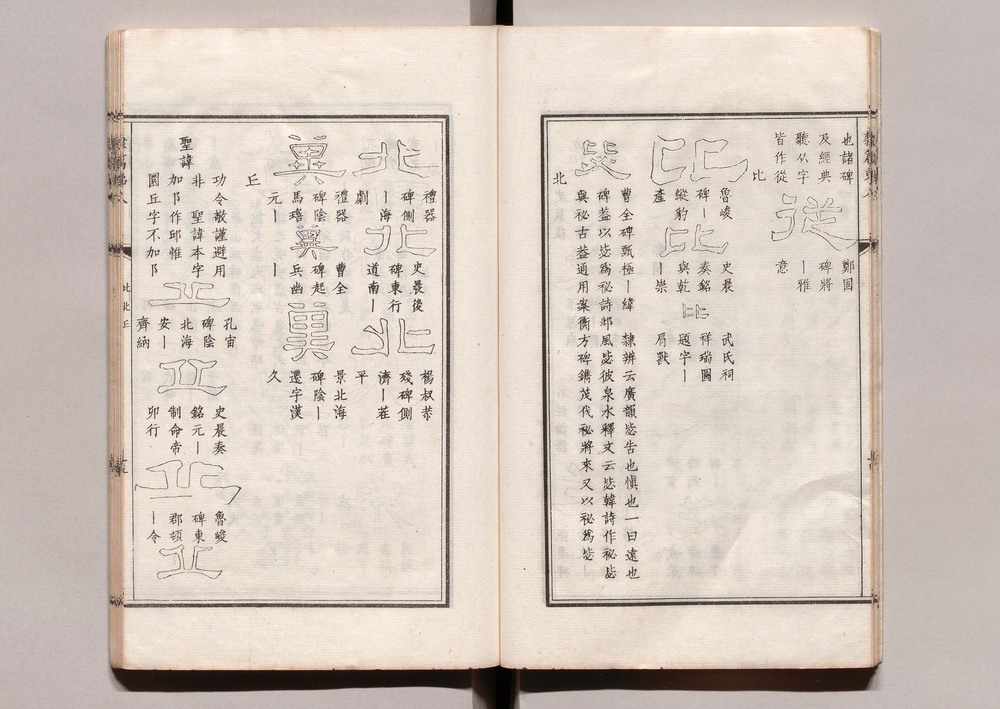 也諸碑
及經典
聽从字
皆作從
從
鄭固
碑將
丨雅
意
比
比
魯峻
碑丨
縱豹
產
比
史晨
奏銘
與乾
丨崇
比
武氏祠
祥瑞圖
題字丨
肩獸
毖
曹全碑甄極丨緯　隸辨云廣韻毖告也慎也一曰遠也
碑葢以毖爲秘詩邶風毖彼泉水釋文云毖韓詩作秘毖
與祕古葢通用案衡方碑鐫茂伐祕將來又以祕爲毖丨
北
北
禮器
碑側
丨海
劇
北
史晨後
碑東行
道南丨
北
楊叔恭
殘碑側
濟丨茬
平
冀
禮器
碑陰
馬瑨
元丨
冀
曹全
碑起
兵幽
丨
冀
景北海
碑陰丨
遷字漢
久
丘
功令敬謹避用
聖諱
非　聖諱本字
加阝作邱惟
圜丘字不加阝
丘
孔宙
碑陰
北海
安丨
齊納
丘
史晨奏
銘元丨
制命帝
卯行
丘
魯峻
碑東
郡頓
丨令
丘
比北丘